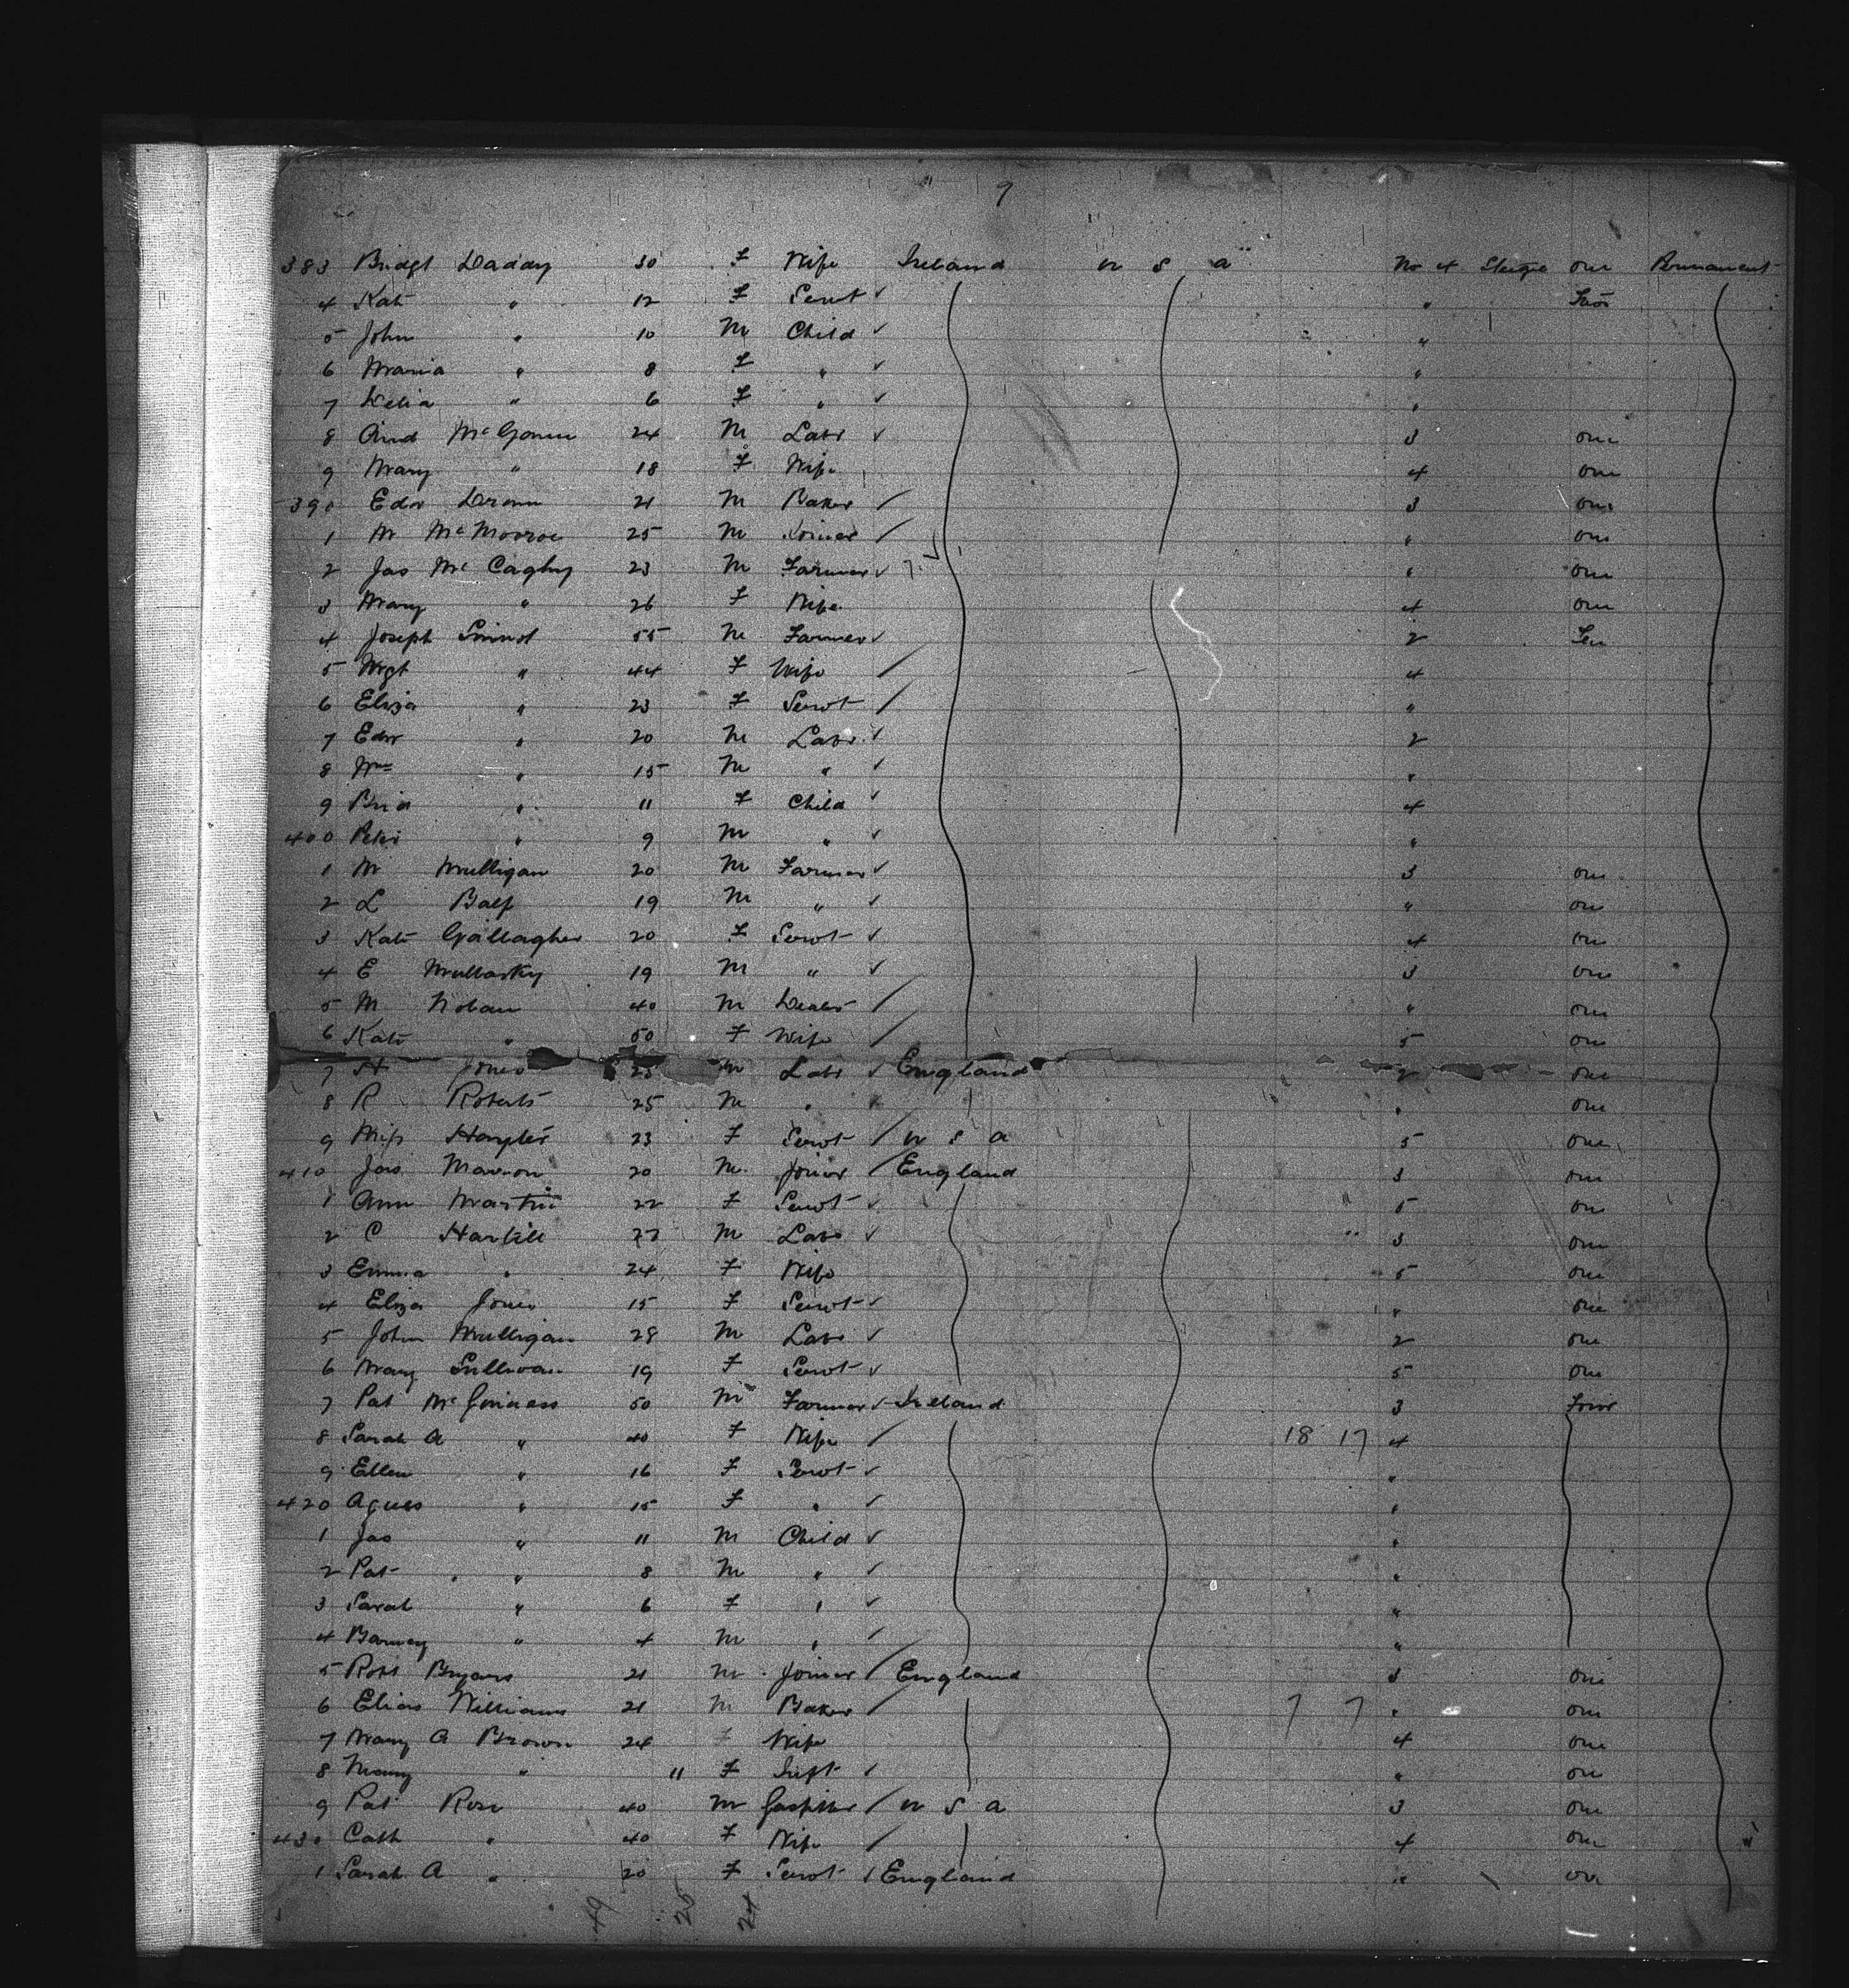 9
383 Bridgt Daddy 30 F Wife Ireland U S A No 4 Steerage one Permanent
4 Kate " 12 F Servt ✓ " Two
5 John " 10 M Child ✓ "
6 Maria " 8 F " ✓ "
7 Delia " 6 F " ✓ "
8 And McGowan 24 M Labr ✓ 3 one
9 Mary " 18 F Wife 4 one
390 Edw 21 M Baker / 3 one
1 M McMorroe 25 M Joiner / " one
2 Jas Mc Caghy 23 M Farmer ✓ " one
3 Mary " 26 F Wife 4 one
4 Joseph Sinnot 55 M Farmer ✓ 2 Ten
5 Mgt " 44 F Wife / 4
6 Eliza " 23 F Servt / "
7 Edw " 20 M Labr ✓ 2
8 Wm " 15 M " ✓ "
9 Brid " 11 F Child ✓ 4
400 Peter " 9 M " ✓ "
1 M Mulligan 20 M Farmer ✓ 3 one
2 L Balf 19 M " ✓ " one
3 Kate Gallagher 20 F Servt ✓ 4 one
4 E Mullarky 19 M " ✓ 3 one
5 M Nolan 40 M Dealer / " one
6 Kate " 50 F Wife / 5 one
7 H Jones 23 M Labr ✓ England 2 one
8 R Roberts 25 M " " one
9 Miss 23 F Servt / U S A 5 one
410 Jas Marron 20 M Joiner / England 3 one
1 Ann Martin 22 F Servt ✓ 5 one
2 C Hartill 27 M Labr ✓ 3 one
3 Emma " 24 F Wife 5 one
4 Eliza Jones 15 F Servt ✓ " one
5 John Mulligan 28 M Labr ✓ 2 one
6 Mary Sullivan 19 F Servt ✓ 5 one
7 Pat McGuiness 50 M Farmer ✓ Ireland 3 Four
8 Sarah A " 40 F Wife / 18 17 4
9 Ellen " 16 F Servt ✓ "
420 Agnes " 15 F " ✓ "
1 Jas " 11 M Child ✓ "
2 Pat " 8 M " ✓ "
3 Sarah " 6 F " ✓ "
4 Barney " 4 M " ✓ "
5 Robt Bryans 21 M Joiner / England 3 one
6 Elias Williams 21 M Baker / 7 7 " one
7 Mary A Brown 24 F Wife 4 one
8 Mary " 11 F Inft ✓ " one
9 Pat Rose 40 M Gasfitter / U S A 3 one
430 Cath " 40 F Wife / 4 one
1 Sarah A " 20 F Servt / England " one
49 25 24